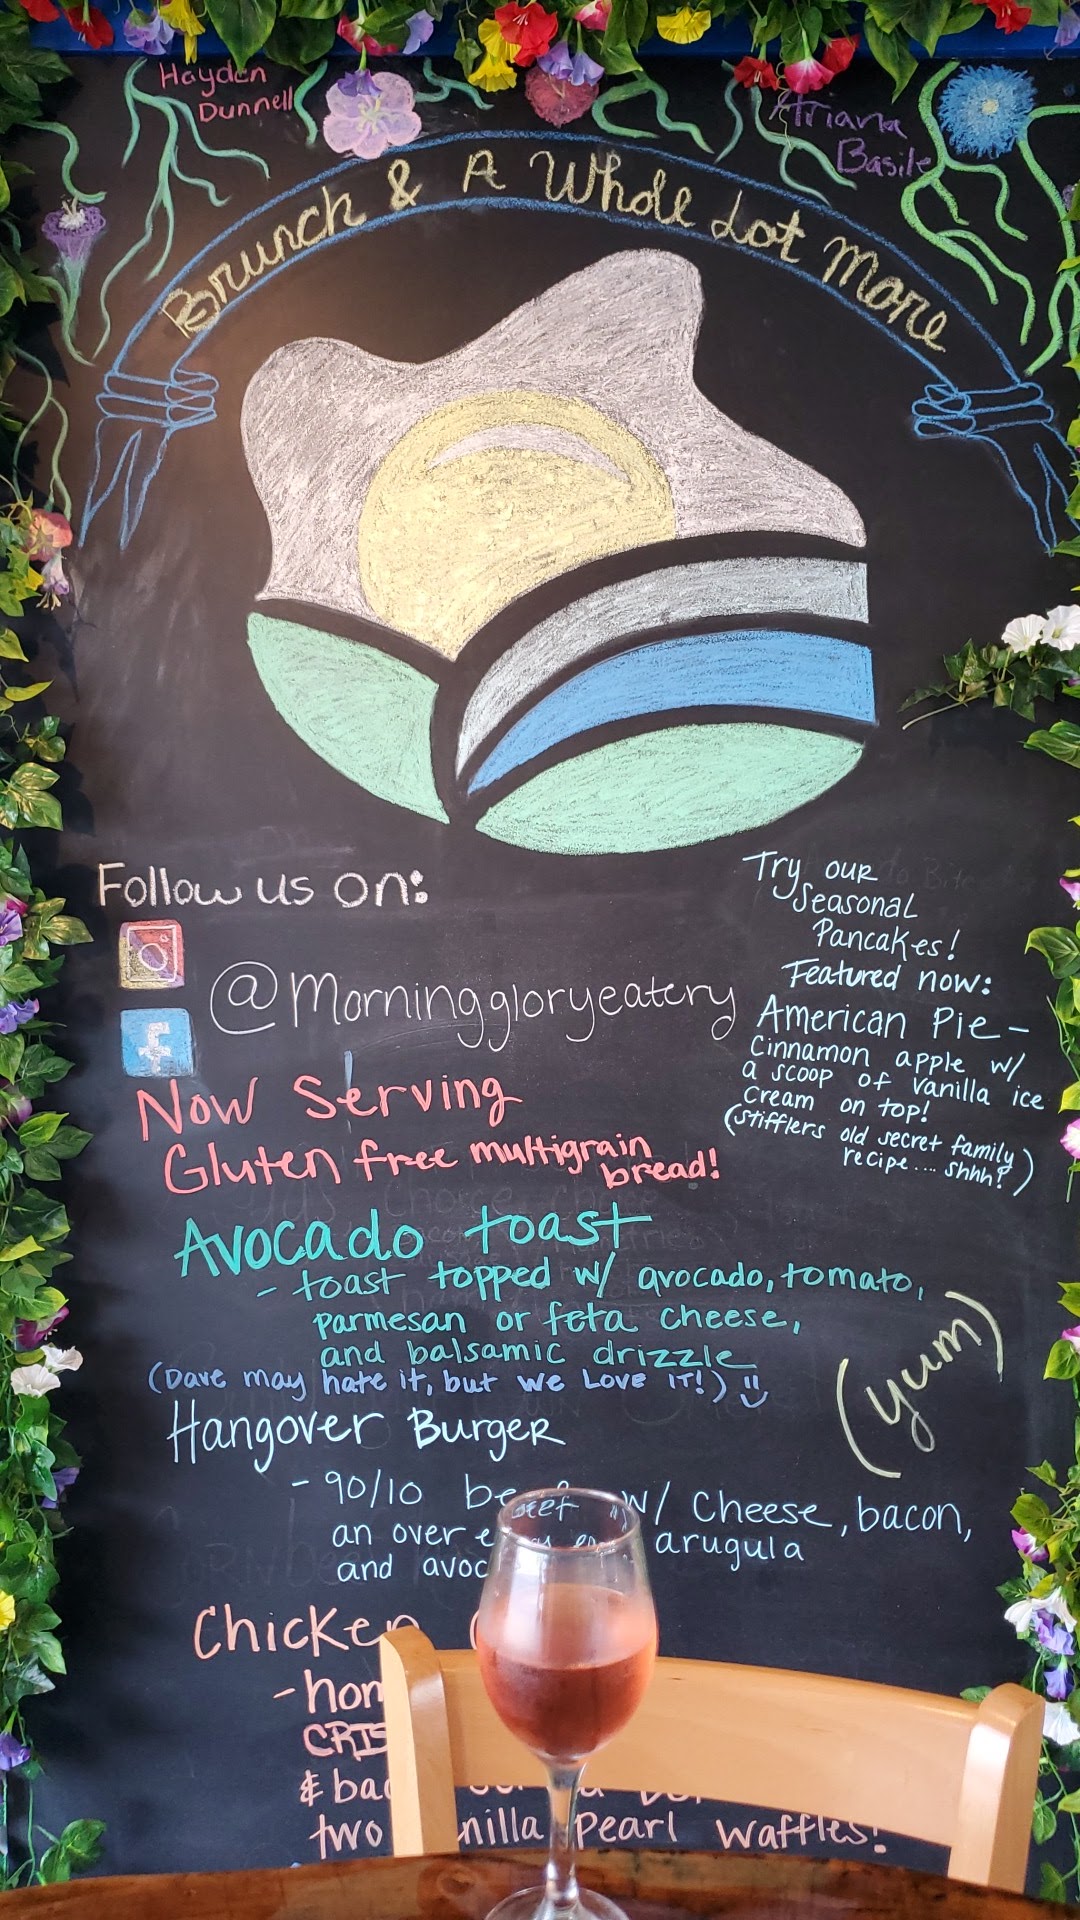 Hayden
Dunnell
Ariana
Basile
Brunch & A Whole Lot More
Follow us on:
@Morninggloryeatery
Try our
Seasonal
Pancakes!
Featured now:
American Pie –
Cinnamon apple w/
a scoop of vanilla ice
cream on top!
(Stifflers old secret family
recipe.... shhh!)
Now Serving
Gluten free multigrain
bread!
Avocado toast
- toast topped w/ avocado, tomato,
parmesan or feta cheese,
and balsamic drizzle
(Dave may hate it, but we Love IT!)
(yum)
Hangover Burger
- 90/10 beef w/ Cheese, bacon,
an over arugula
and
Chicken
-
&
two pearl waffles!